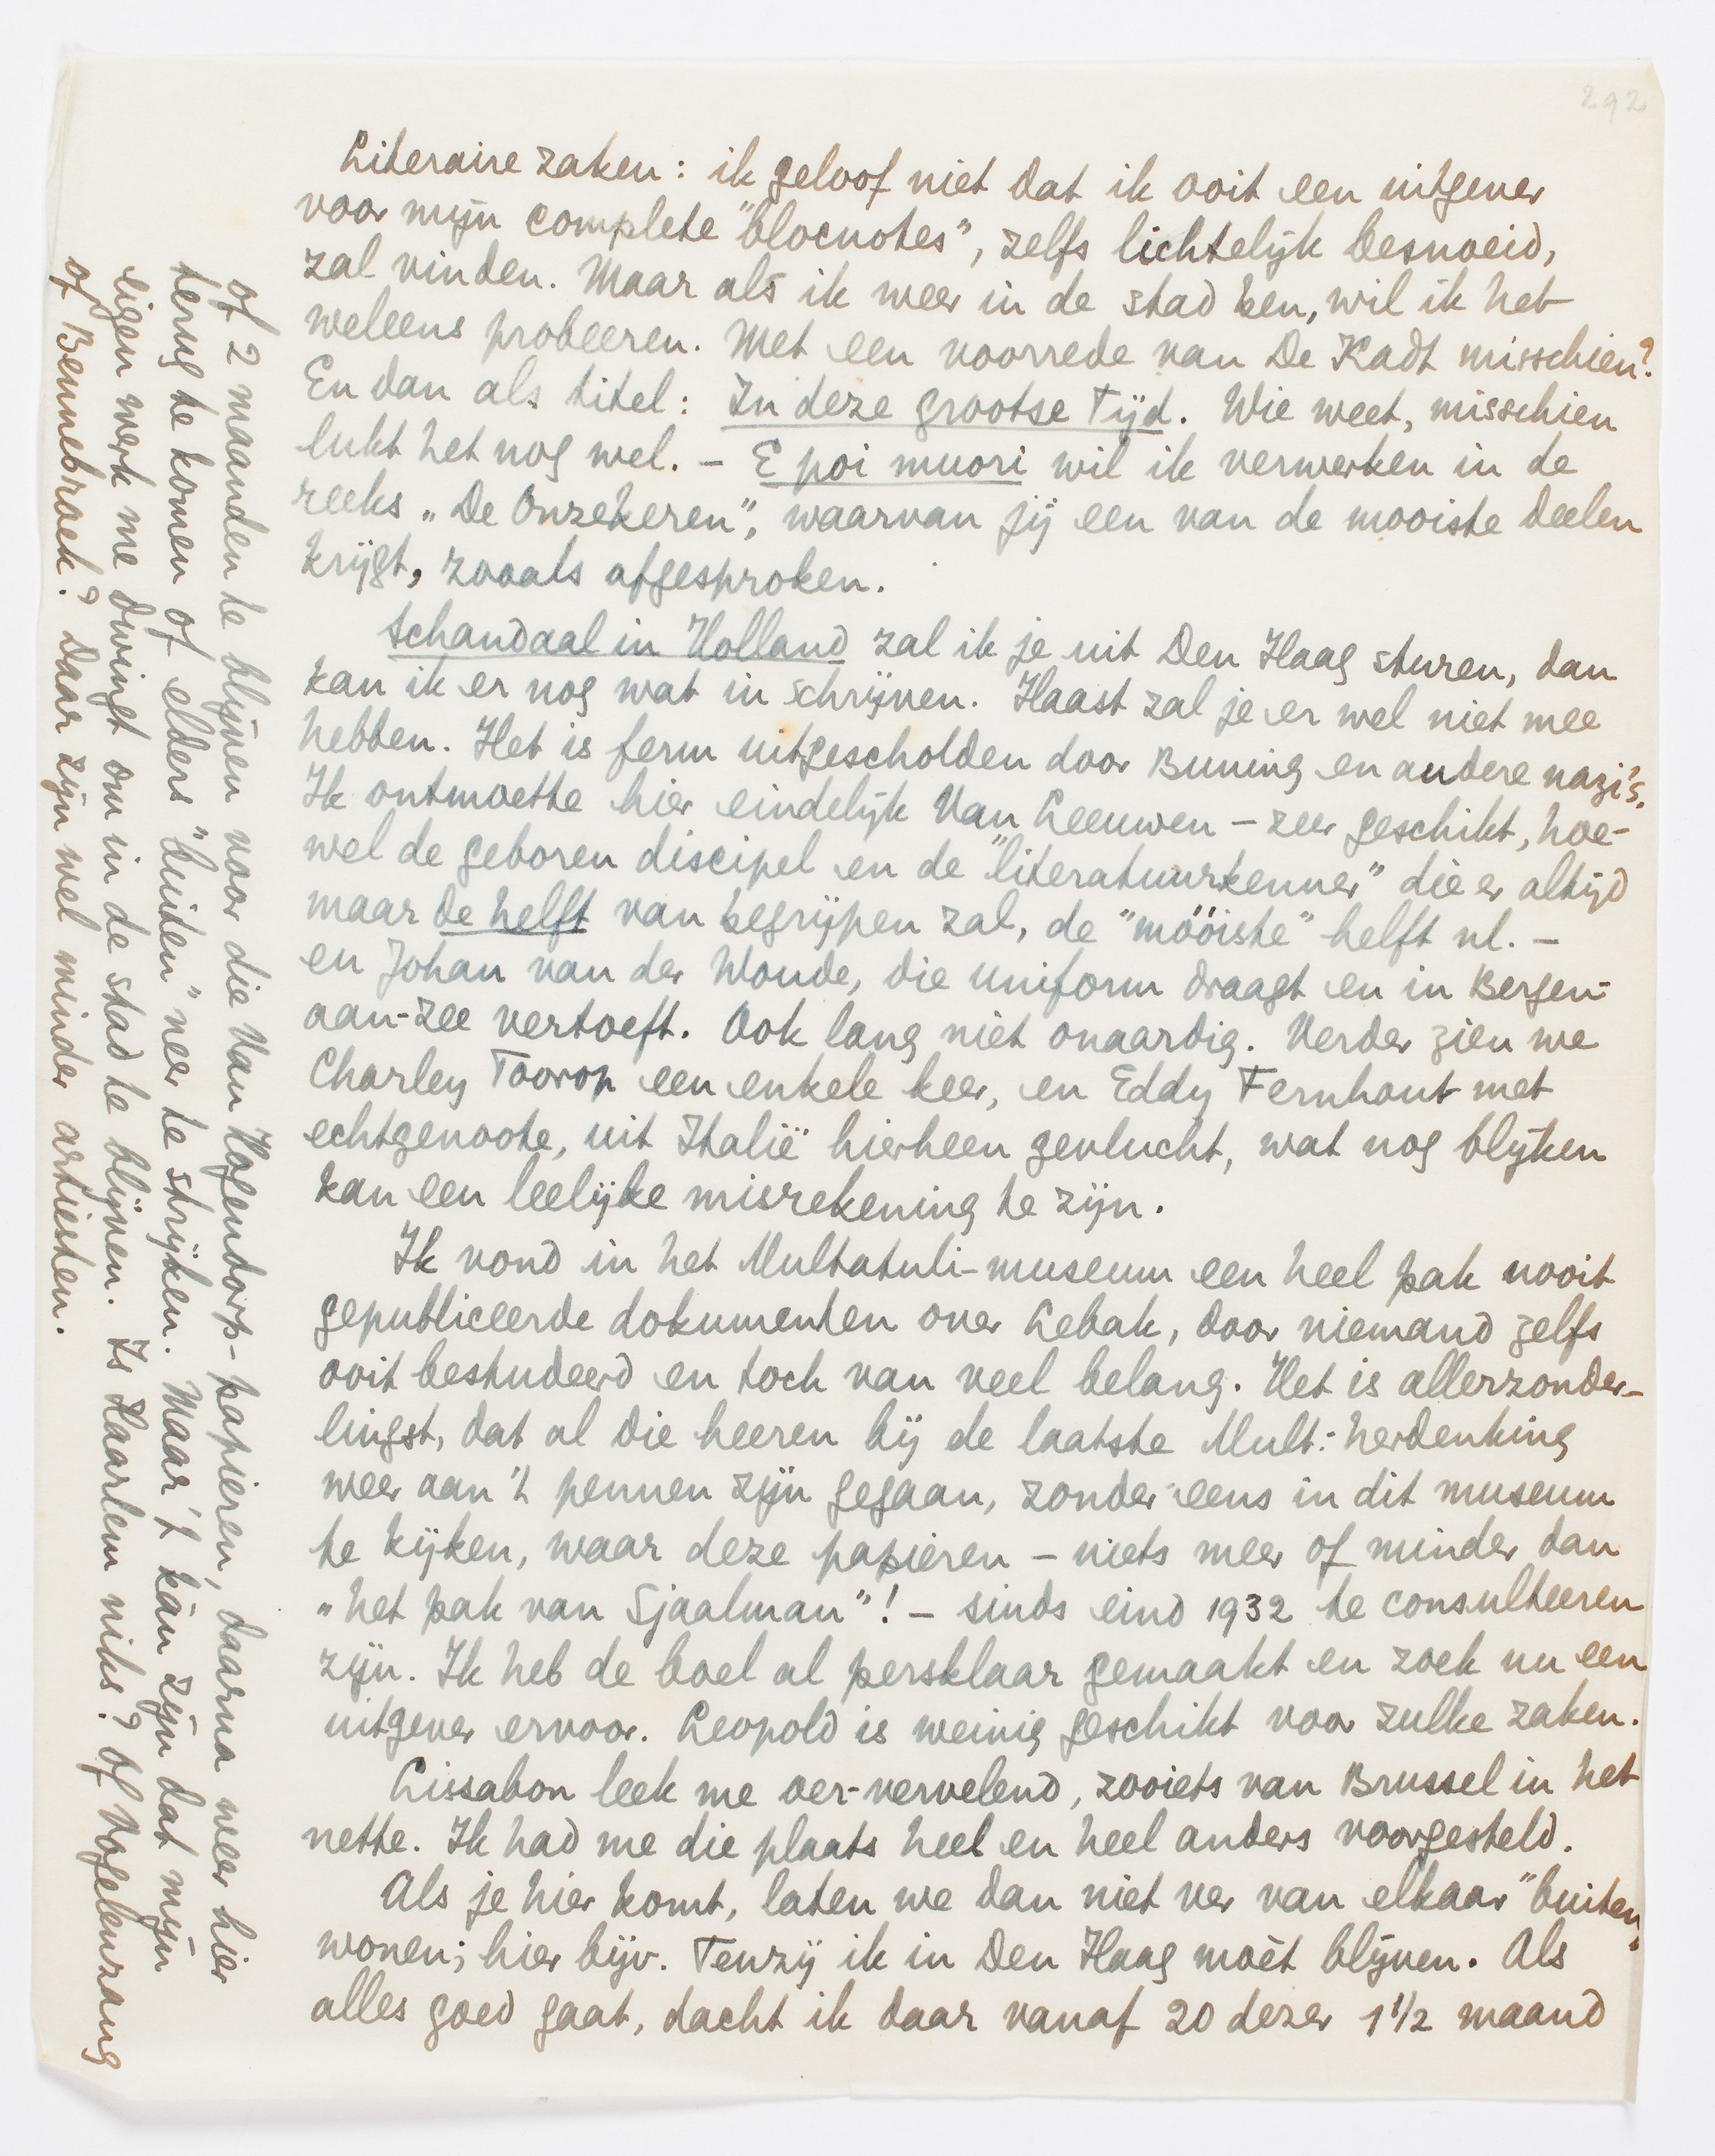 292
Literaire zaken: ik geloof niet dat ik ooit een uitgever
voor mijn complete "blocnotes", zelfs lichtelijk besnoeid,
zal vinden. Maar als ik weer in de stad ben, wil ik het
weleens probeeren. Met een voorrede van De Kadt misschien?
En dan als titel: In deze grootse Tijd. Wie weet, misschien
lukt het nog wel. – E poi muori wil ik verwerken in de
reeks „De Onzekeren", waarvan jij een van de mooiste deelen
krijgt, zooals afgesproken.
Schandaal in Holland zal ik je uit Den Haag sturen, dan
kan ik er nog wat in schrijven. Haast zal je er wel niet mee
hebben. Het is ferm uitgescholden door Buning en andere nazi's.
Ik ontmoette hier eindelijk Van Leeuwen – zeer geschikt, hoe-
wel de geboren discipel en de "literatuurkenner" die er altijd
maar de helft van begrijpen zal, de "móóiste" helft nl. –
en Johan van der Woude, die uniform draagt en in Bergen-
aan-Zee vertoeft. Ook lang niet onaardig. Verder zien we
Charley Toorop een enkele keer, en Eddy Fernhout met
echtgenoote, uit Italië hierheen gevlucht, wat nog blijken
kan een leelijke misrekening te zijn.
Ik vond in het Multatuli-museum een heel pak nooit
gepubliceerde dokumenten over Lebak, door niemand zelfs
ooit bestudeerd en toch van veel belang. Het is allerzonder-
lingst, dat al die heeren bij de laatste Mult.-herdenking
weer aan 't pennen zijn gegaan, zonder eens in dit museum
te kijken, waar deze papieren – niets meer of minder dan
„het pak van Sjaalman"! – sinds eind 1932 te consulteeren
zijn. Ik heb de boel al persklaar gemaakt en zoek nu een
uitgever ervoor. Leopold is weinig geschikt voor zulke zaken.
Lissabon leek me oer-vervelend, zooiets van Brussel in het
nette. Ik had me die plaats heel en heel anders voorgesteld.
Als je hier komt, laten we dan niet ver van elkaar "buiten"
wonen; hier bijv. Tenzij ik in Den Haag moèt blijven. Als
alles goed gaat, dacht ik daar vanaf 20 dezer 1 1/2 maand
of 2 maanden te blijven voor die Van Hogendorp-papieren, daarna weer hier
terug te komen of elders "buiten" neer te strijken. Maar 't kàn zijn dat mijn
eigen werk me dwingt om in de stad te blijven. Is Haarlem niks? Of Vogelenzang
of Bennebroek? Daar zijn wel minder artiesten.